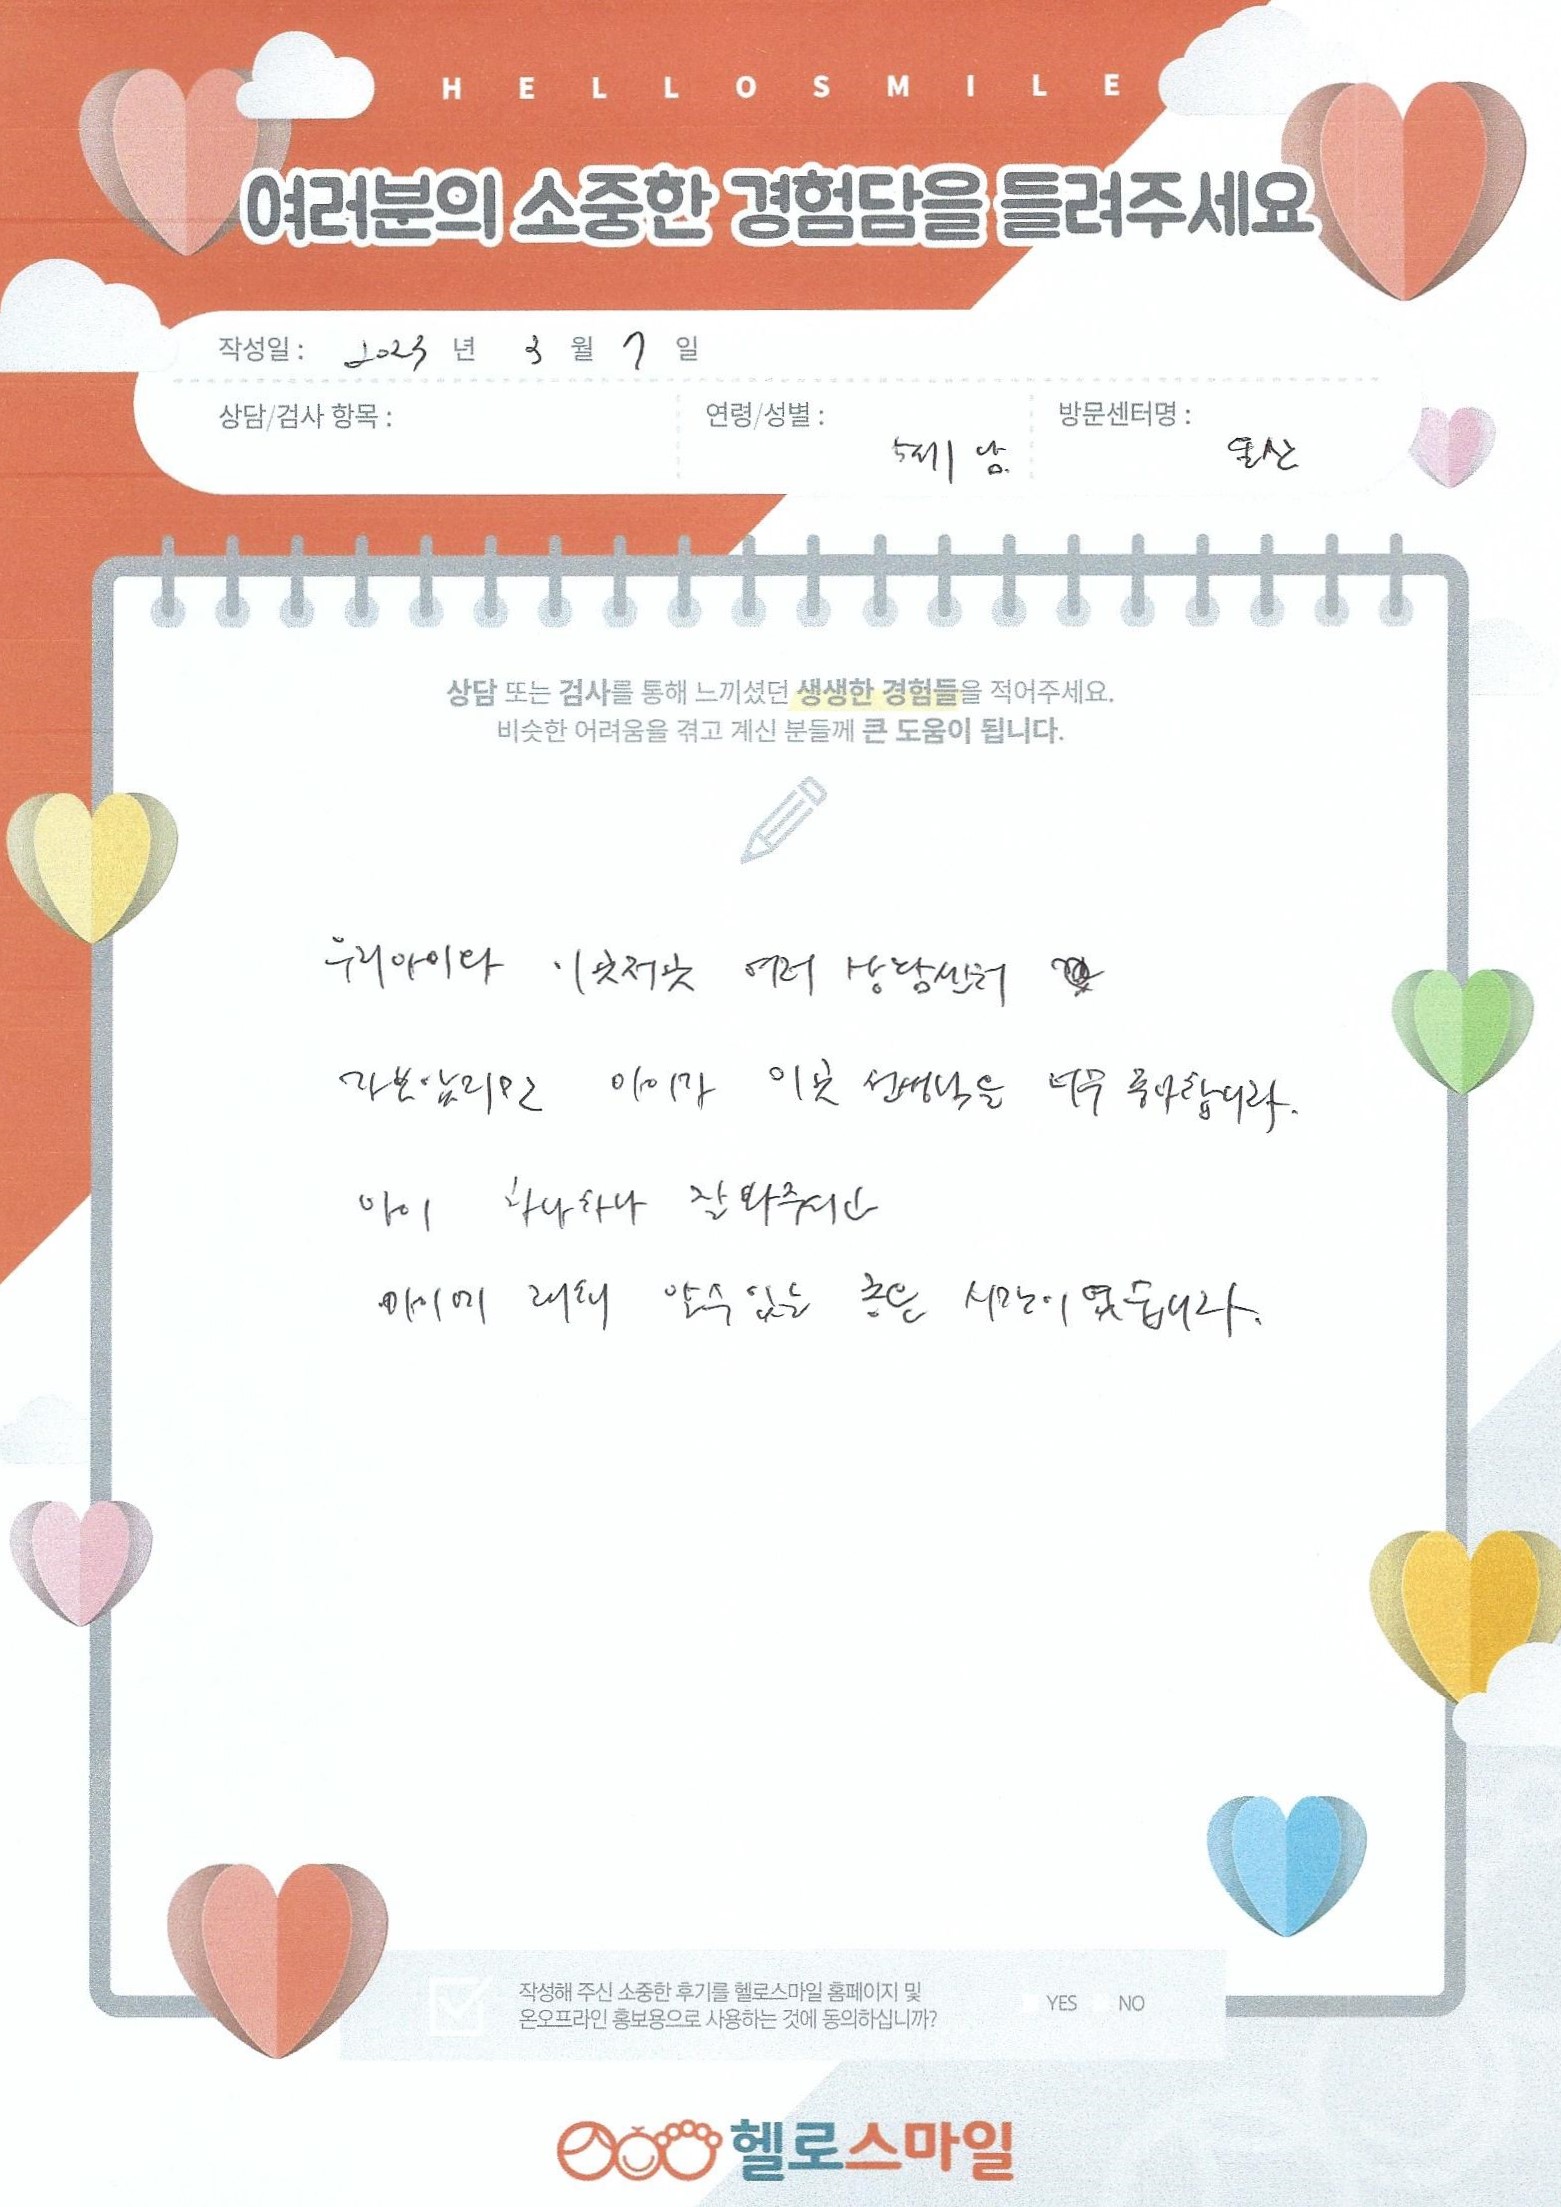 HELLOSMILE
여러분의 소중한 경험담을 들려주세요
작성일 : 2023 년 3 월 7 일
상담/검사 항목 :
연령/성별 : 5세 남.
방문센터명 : 울산
상담 또는 검사를 통해 느끼셨던 생생한 경험들을 적어주세요.
비슷한 어려움을 겪고 계신 분들께 큰 도움이 됩니다.
우리아이와 이곳저곳 여러 상담센터
가본 아이가 이곳 선생님을 너무 좋아합니다.
아이 하나하나 잘 봐주시고
아이에 대해 알수있는 좋은 시간이였습니다.
작성해 주신 소중한 후기를 헬로스마일 홈페이지 및
온오프라인 홍보용으로 사용하는 것에 동의하십니까?
YES NO
헬로스마일